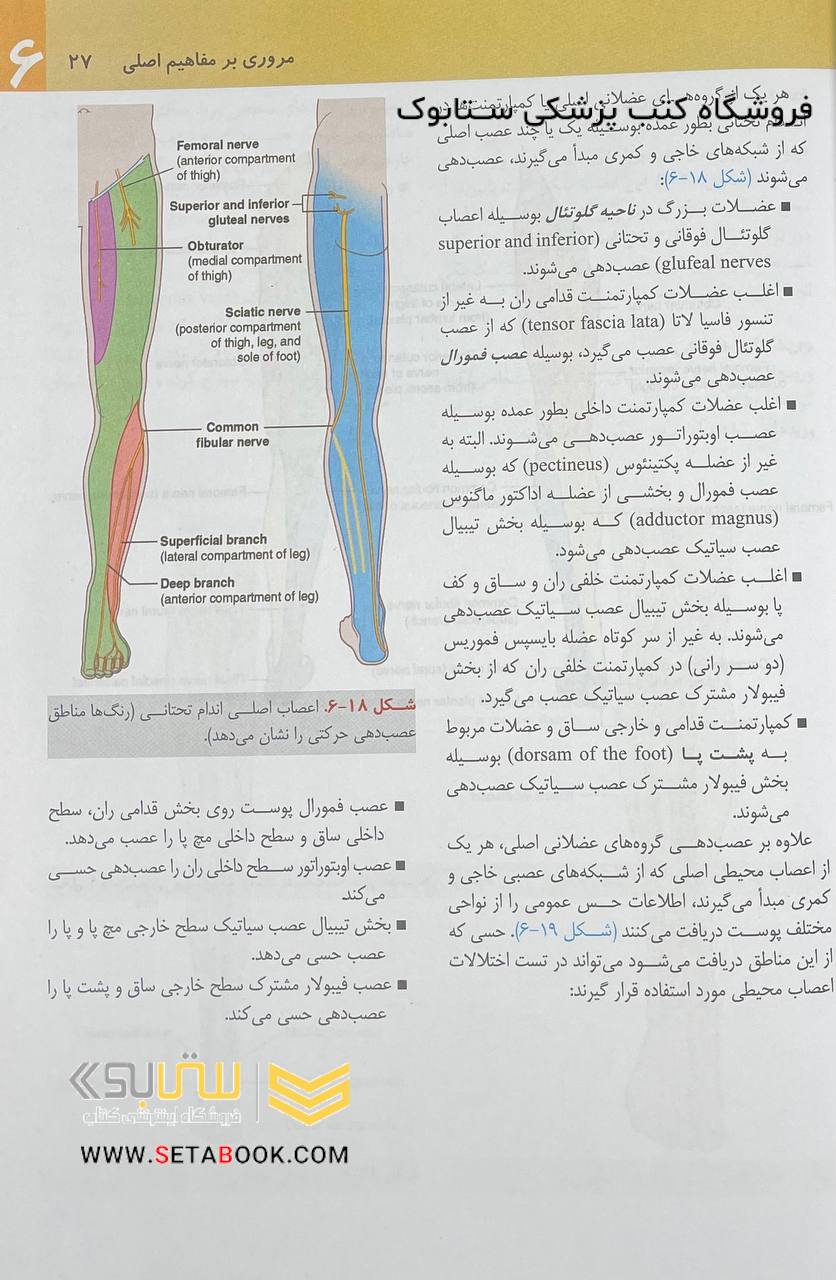 ۶
۲۷ مروری بر مفاهیم اصلی
هر یک از گروه‌های عضلانی اصلی یا کمپارتمنت‌ها در
فروشگاه کتب پزشکی ستابوک
اندام تحتانی بطور عمده بوسیله یک یا چند عصب اصلی
که از شبکه‌های خاجی و کمری مبدأ می‌گیرند، عصب‌دهی
می‌شوند (شکل ۱۸-۶):
■ عضلات بزرگ در ناحیه گلوتئال بوسیله اعصاب
گلوتئال فوقانی و تحتانی (superior and inferior
glufeal nerves) عصب‌دهی می‌شوند.
■ اغلب عضلات کمپارتمنت قدامی ران به غیر از
تنسور فاسیا لاتا (tensor fascia lata) که از عصب
گلوتئال فوقانی عصب می‌گیرد، بوسیله عصب فمورال
عصب‌دهی می‌شوند.
■ اغلب عضلات کمپارتمنت داخلی بطور عمده بوسیله
عصب اوبتوراتور عصب‌دهی می‌شوند. البته به
غیر از عضله پکتینئوس (pectineus) که بوسیله
عصب فمورال و بخشی از عضله اداکتور ماگنوس
(adductor magnus) که بوسیله بخش تیبیال
عصب سیاتیک عصب‌دهی می‌شود.
■ اغلب عضلات کمپارتمنت خلفی ران و ساق و کف
پا بوسیله بخش تیبیال عصب سیاتیک عصب‌دهی
می‌شوند. به غیر از سر کوتاه عضله بایسپس فموریس
(دو سر رانی) در کمپارتمنت خلفی ران که از بخش
فیبولار مشترک عصب سیاتیک عصب می‌گیرد.
■ کمپارتمنت قدامی و خارجی ساق و عضلات مربوط
به پشت پا (dorsam of the foot) بوسیله
بخش فیبولار مشترک عصب سیاتیک عصب‌دهی
می‌شوند.
علاوه بر عصب‌دهی گروه‌های عضلانی اصلی، هر یک
از اعصاب محیطی اصلی که از شبکه‌های عصبی خاجی و
کمری مبدأ می‌گیرند، اطلاعات حس عمومی را از نواحی
مختلف پوست دریافت می‌کنند (شکل ۱۹-۶). حسی که
از این مناطق دریافت می‌شود می‌تواند در تست اختلالات
اعصاب محیطی مورد استفاده قرار گیرند:
Femoral nerve
(anterior compartment
of thigh)
Superior and inferior
gluteal nerves
Obturator
(medial compartment
of thigh)
Sciatic nerve
(posterior compartment
of thigh, leg, and
sole of foot)
Common
fibular nerve
Superficial branch
(lateral compartment of leg)
Deep branch
(anterior compartment of leg)
شکل ۱۸-۶. اعصاب اصلی اندام تحتانی (رنگ‌ها مناطق
عصب‌دهی حرکتی را نشان می‌دهد).
■ عصب فمورال پوست روی بخش قدامی ران، سطح
داخلی ساق و سطح داخلی مچ پا را عصب می‌دهد.
■ عصب اوبتوراتور سطح داخلی ران را عصب‌دهی حسی
می‌کند
■ بخش تیبیال عصب سیاتیک سطح خارجی مچ پا و پا را
عصب حسی می‌دهد.
■ عصب فیبولار مشترک سطح خارجی ساق و پشت پا را
عصب‌دهی حسی می‌کند.
ستابوک
فروشگاه اینترنتی کتاب
WWW.SETABOOK.COM